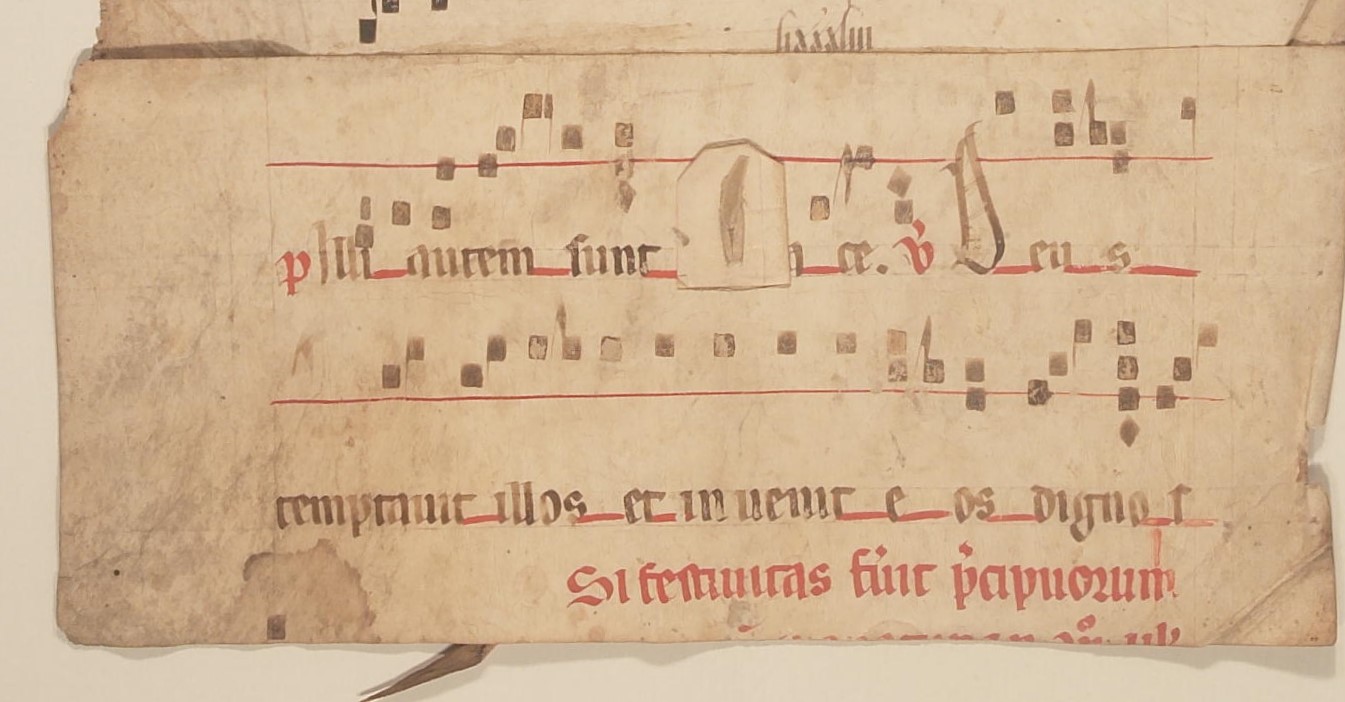 p Illi autem sunt ce. v̊ Deus
temptauit illos et inuenit eos dignos
Si festiuitas fu͛it p͛cipuorum